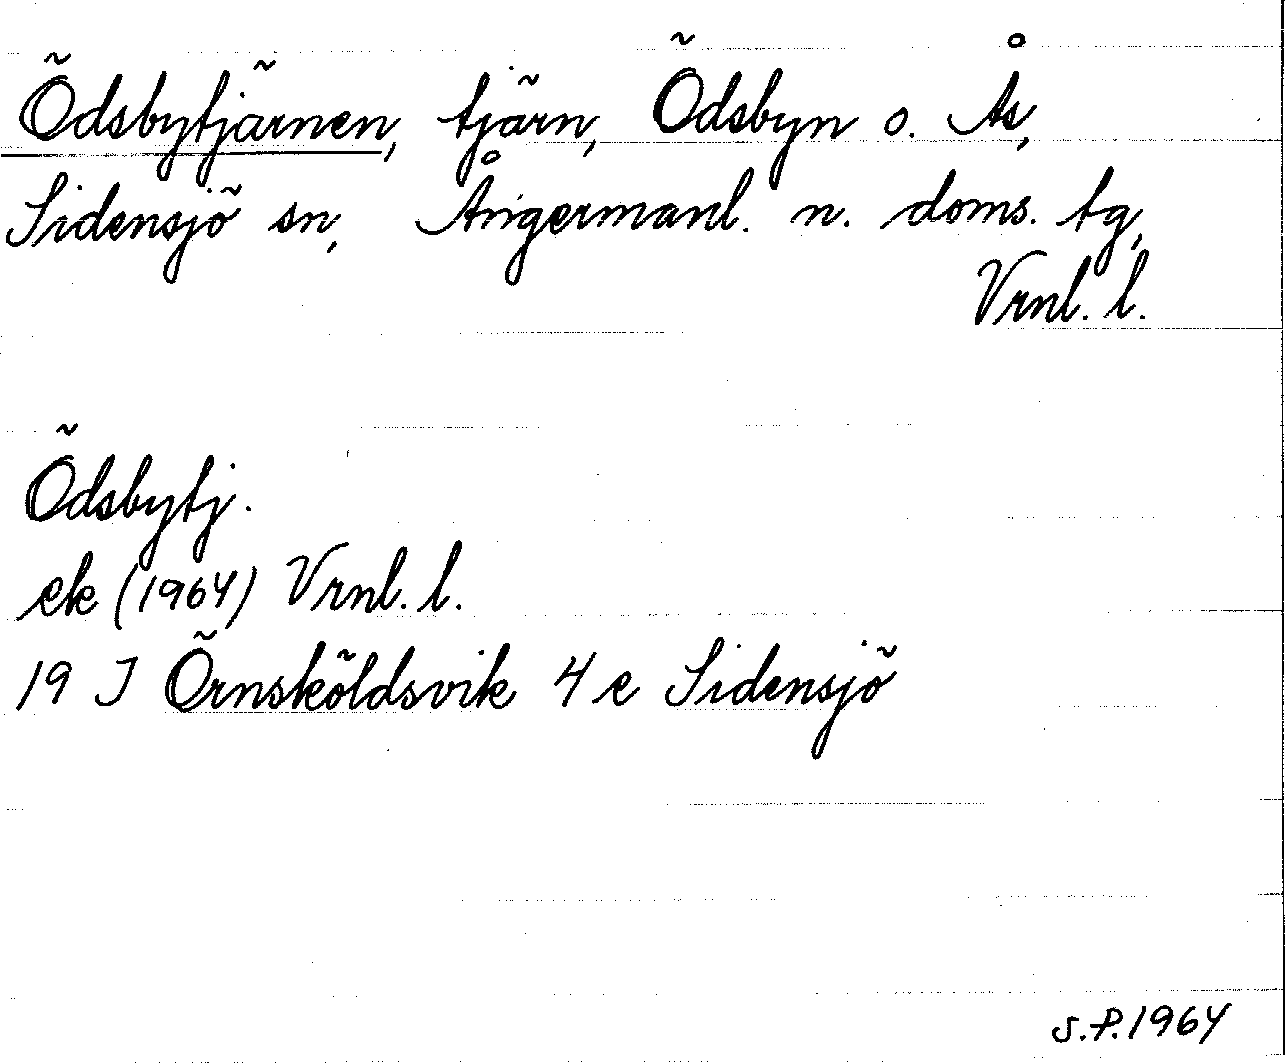 Ödsbytjärnen, tjärn, Ödsbyn o. Ås,
Sidensjö sn, Ångermanl. n. doms. tg,
Vrnl. l.
Ödsbytj.
ek (1964) Vrnl. l.
19 J Örnsköldsvik 4 e Sidensjö
S.P. 1964